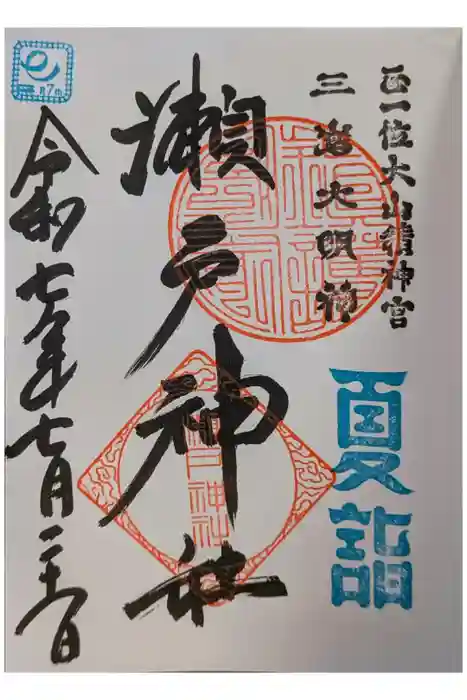 正一位大山積神宮
三島大明神
夏詣
瀬戸神社
令和七年七月二十一日